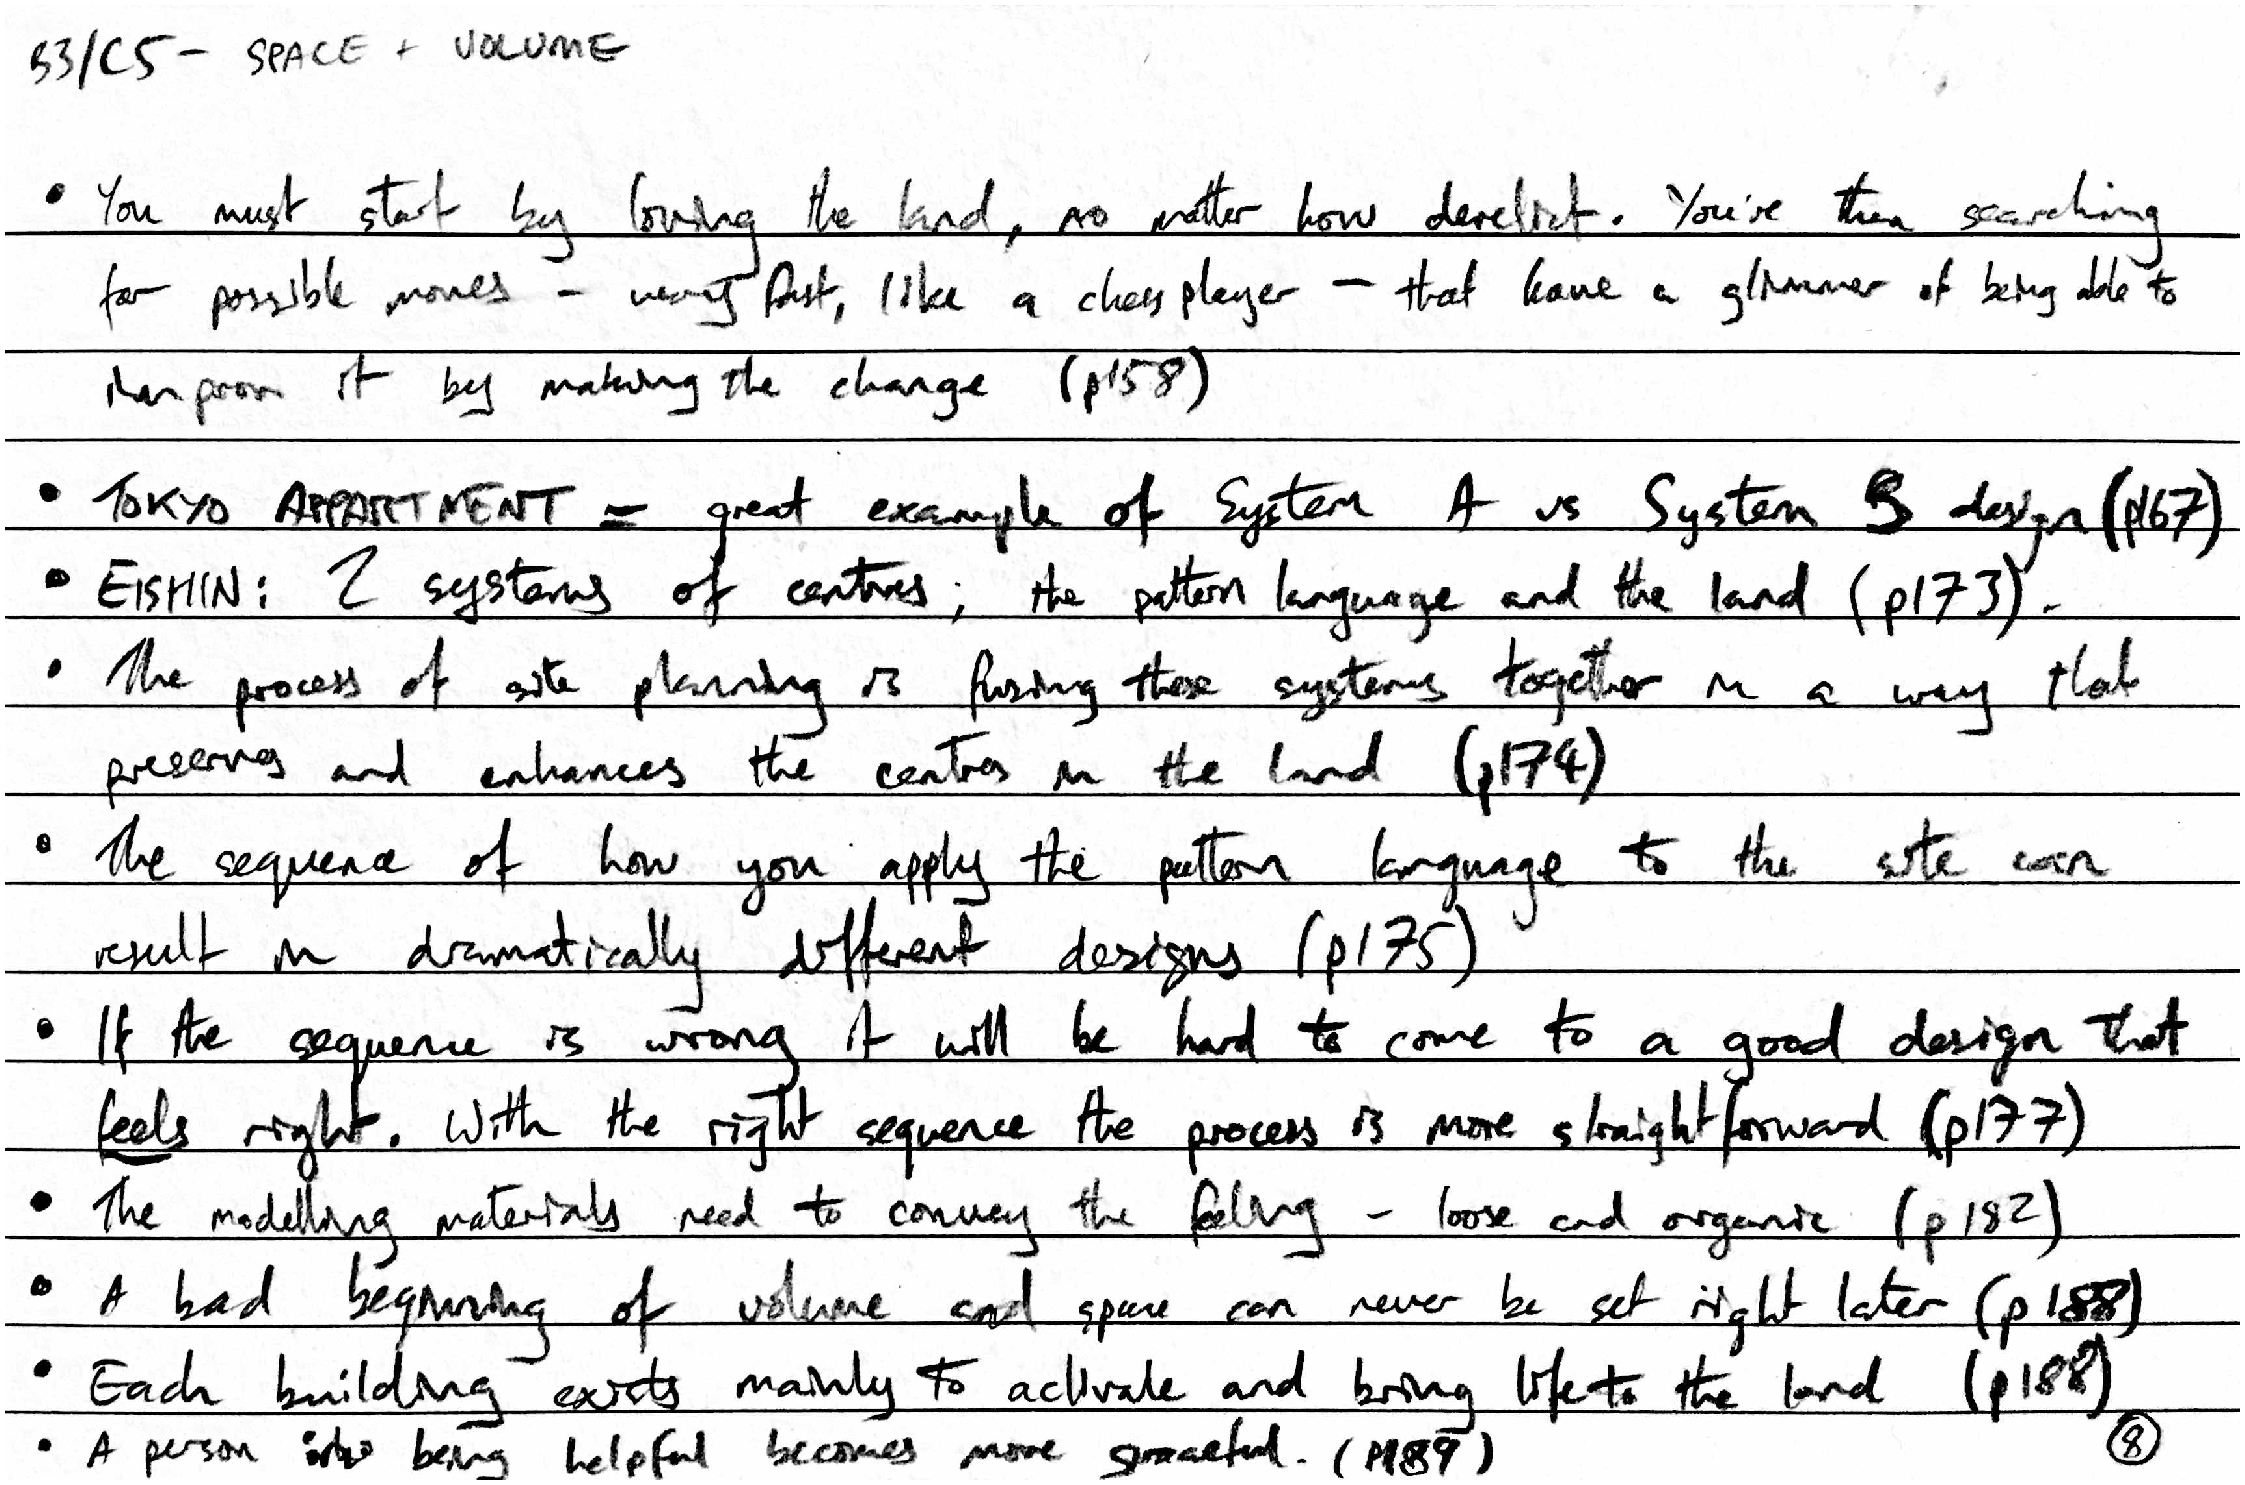 B3/C5 - SPACE + VOLUME
• You must start by loving the land, no matter how derelict. You're then searching
for possible moves - very fast, like a chess player - that have a glimmer of being able to
it by making the change (p158)
• TOKYO APPARTMENT = great example of System A vs System B design (p167)
• EISHIN: 2 systems of centres; the pattern language and the land (p173).
• The process of site planning is fusing these systems together in a way that
preserves and enhances the centres in the land (p174)
• The sequence of how you apply the pattern language to the site can
result in dramatically different designs (p175)
• If the sequence is wrong it will be hard to come to a good design that
feels right. With the right sequence the process is more straightforward (p177)
• The modelling materials need to convey the feeling - loose and organic (p182)
• A bad beginning of volume and space can never be set right later (p188)
• Each building exists mainly to activate and bring life to the land (p188)
• A person being helpful becomes more graceful. (p189)
8